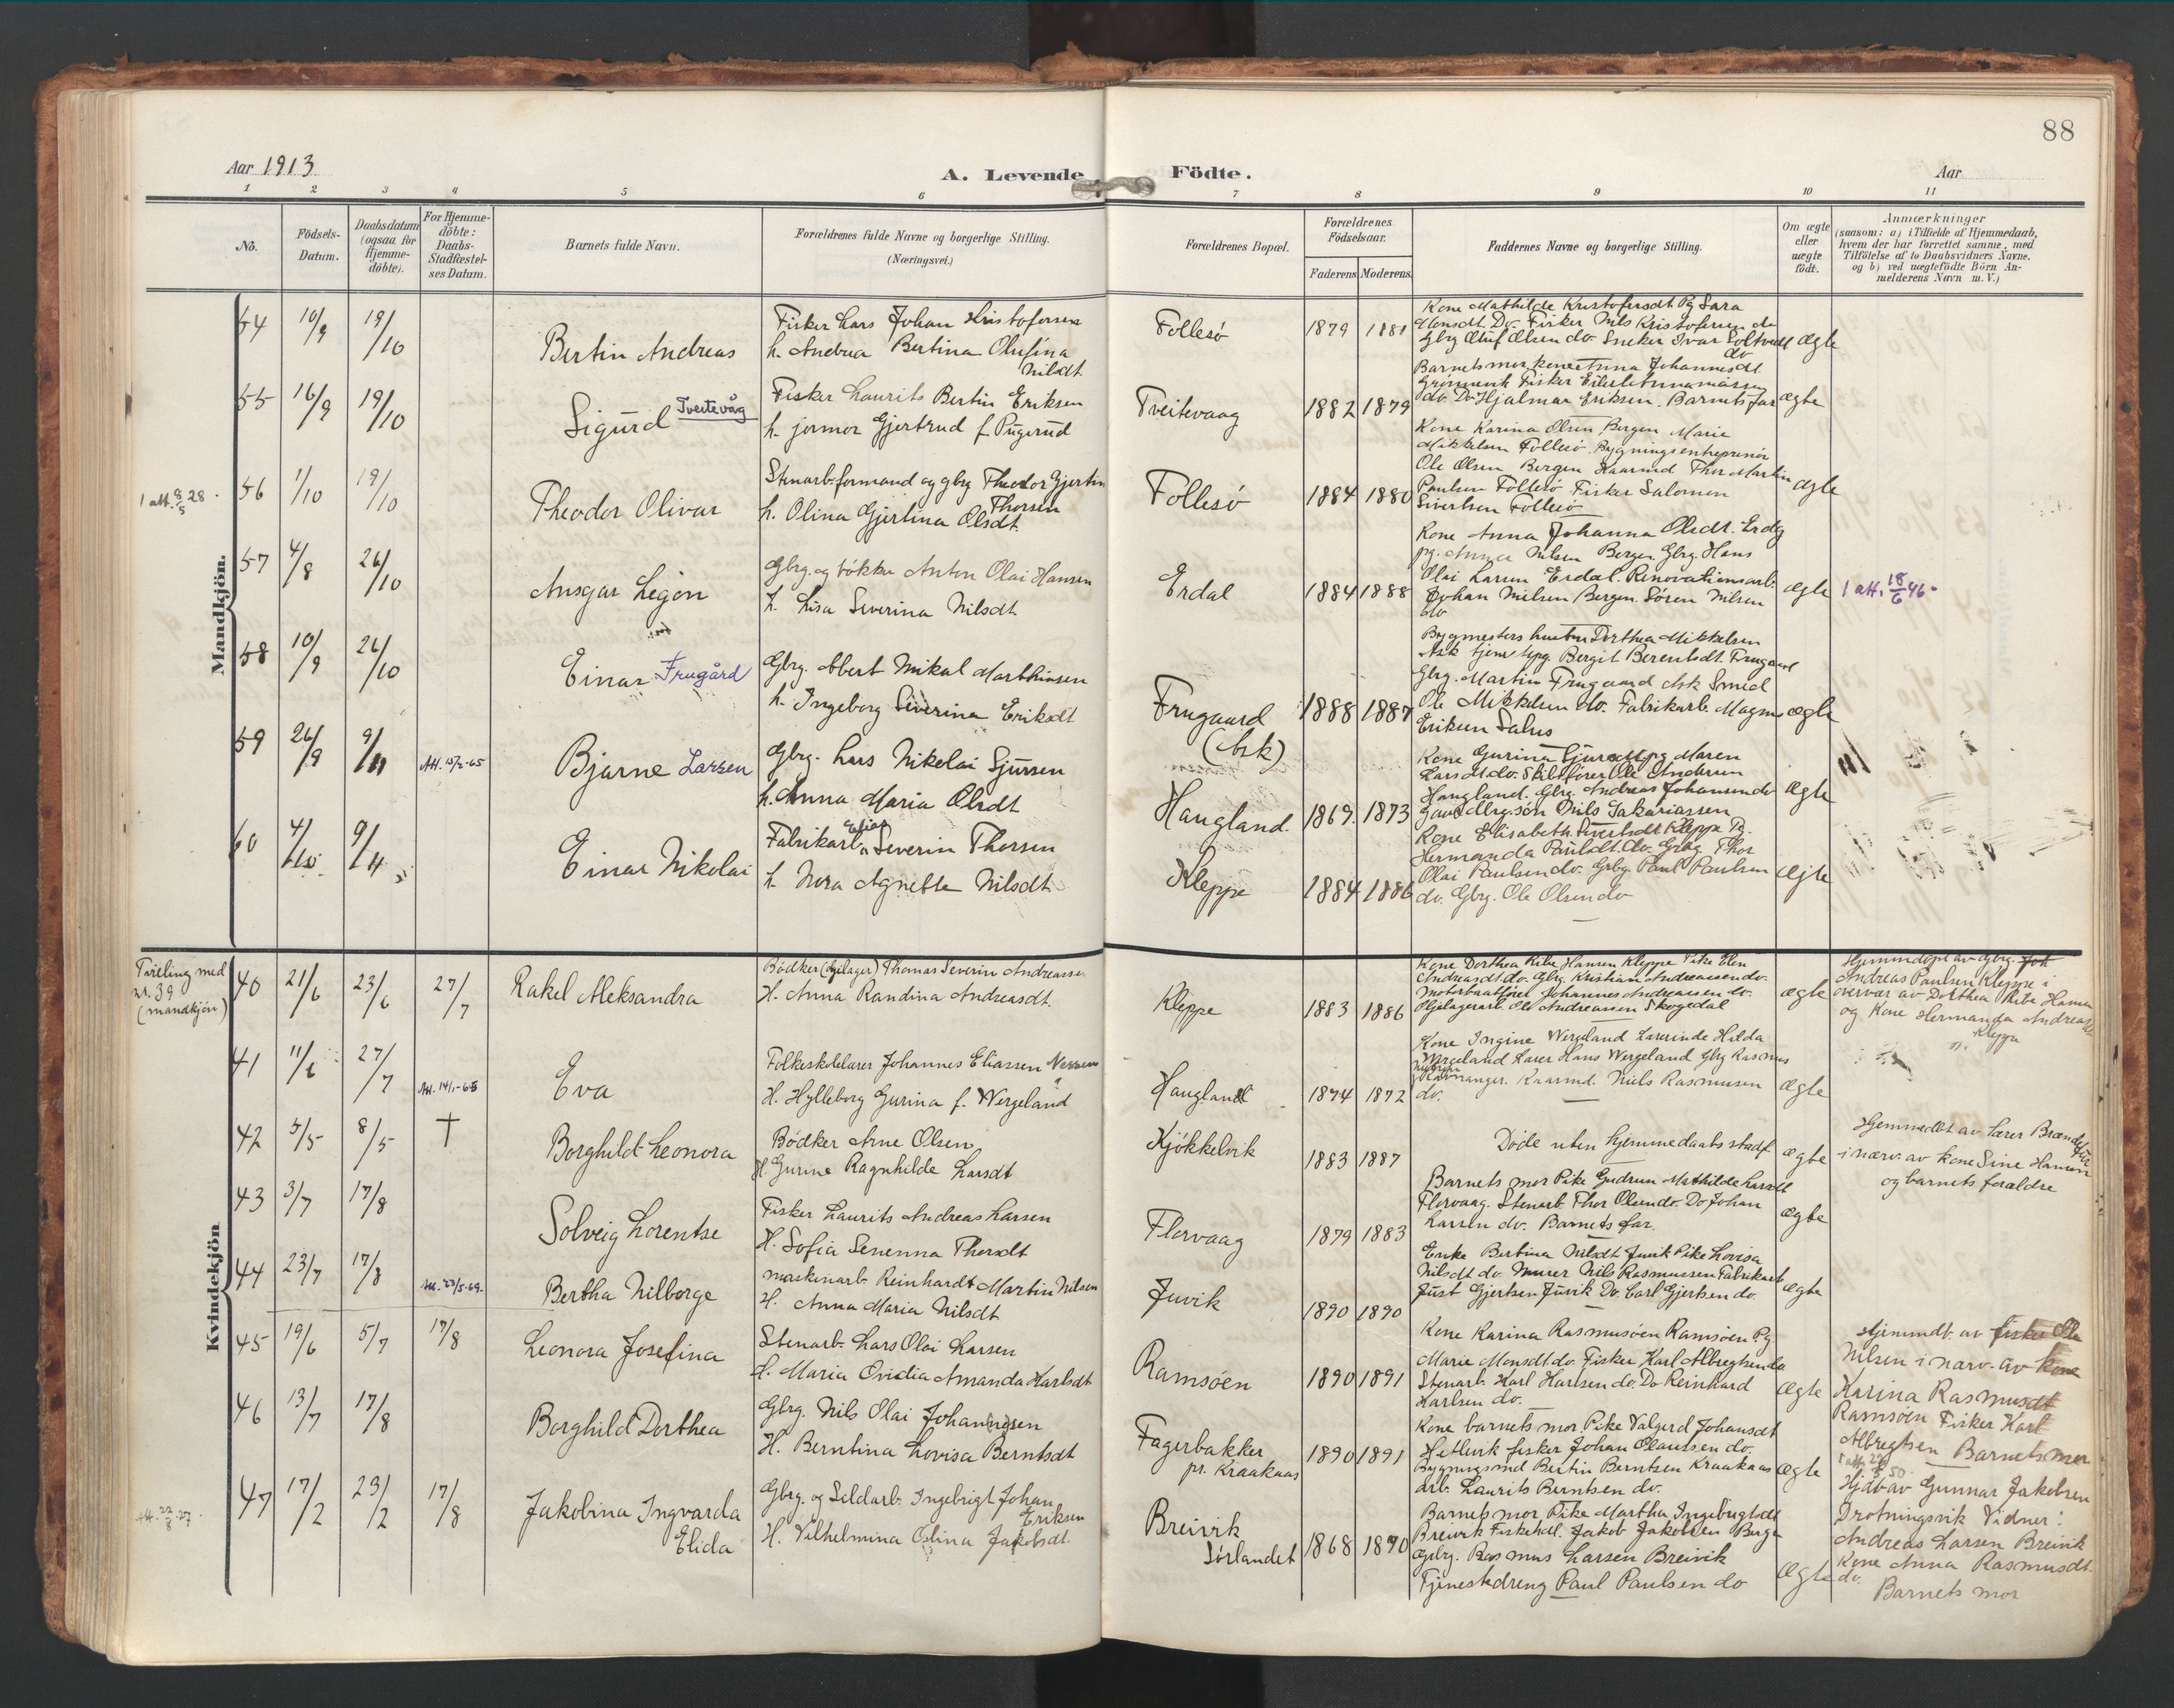 88
Aar 1913
A. Levende Födte.
Aar
1 2 3 4 5 6 7 8 9 10 11
No.
Födsels-
Datum.
Daabsdatum
(ogsaa for
Hjemme-
döbte).
For Hjemme-
döbte:
Daabs-
Stadfæstel-
ses Datum.
Barnets fulde Navn.
Forældrenes fulde Navne og borgerlige Stilling.
(Næringsvei.)
Forældrenes Bopæl.
Forældrenes
Födselsaar.
Faderens. Moderens.
Faddernes Navne og borgerlige Stilling.
Om ægte
eller
uægte
födt.
Anmærkninger
(saasom: a) i Tilfælde af Hjemmedaab,
hvem der har forrettet samme, med
Tilföielse af to Daabsvidners Navne,
og b) ved uægtefödte Börn An-
melderens Navn m.V.)
Mandkjön.
54 10/9 19/10
Bertin Andreas
Fisker Lars Johan Kristofersen
h. Andrea Bertina Olufina
Nilsdt
Follesö 1879 1881
Kone Mathilde Kristofersdt. Pg Sara
Monsdt. Do. Fisker Nils Kristofersen do
Gbrg Oluf Olsen do Sneker Ivar Soltvedt
do
ægte
55 16/9 19/10
Sigurd Tveitevåg
Fisker Laurits Bertin Eriksen
h. jormor Gjertrud f. Pugerud
Tveitevaag 1882 1879
Barnets mor, kone Anna Johannesdt.
do. Do Hjalmar Eriksen. Barnets far
ægte
1 att. 8/5 28.
56 1/10 19/10
Theodor Olivar
Stenarb.formand og gbrg Theodor Gjertin
Thorsen
h. Olina Gjertina Olsdt.
Follesö 1884 1880
Kone Karina Olsen Bergen Marie
Mikkelsen Follesö. Bygningsentreprenör
Ole Olsen Bergen Kaarmd Thor Martin
Paulsen Follesö Fisker Salomon
Sivertsen Follesö
ægte
57 4/8 26/10
Ansgar Ligon
Gbrg. og bökker Anton Olai Hansen
h. Lisa Severina Nilsdt
Erdal 1884 1888
Kone Anna Johanna Olsdt. Erdal
pg. Anna Nilsen Bergen Gbrg. Hans
Olai Larsen Erdal. Renovationsarb.
Johan Nilsen Bergen. Sören Nilsen
do
ægte
1 att. 18/6 46-
58 10/9 26/10
Einar Frugård
Gbrg. Albert Mikal Marthinsen
h. Ingeborg Severina Eriksdt
Frugaard
(Ask)
1888 1887
Bygmesters hustru Dorthea Mikkelsen
Ask tjene Upg. Bergit Berentsdt. Frugaard
Gbrg. Martin Frugaard Ask Smed
Ole Mikkelsen do. Fabrikarb. Magnus
Eriksen Salus
ægte
59 26/9 9/11 Att. 15/2-65
Bjarne Larsen
Gbrg. Lars Nikolai Sjursen
h. Anna Maria Olsdt
Haugland. 1869. 1873
Kone Gurina Sjursdt pg Maren
Larsdt. do. Skibsförer Ole Andersen
Haugland. Gbrg. Andreas Johansen do
Gaardbrg.sön Nils Sakariassen
ægte
60 4/10 9/11
Einar Nikolai
Fabrikarb Elias Severin Thorsen
h. Nora Agnette Nilsdt
Kleppe 1884 1886
Kone Elisabeth Sivertsdt. Kleppe Pg.
Hermanda Paulsdt. do. Gbrg Thor
Olai Paulsen do. Gbrg. Paul Paulsen
do. Gbrg. Ole Olsen do
ægte
Kvindekjön
Tvilling med
nr. 39
(mandkjön)
40 21/6 23/6 27/7
Rakel Aleksandra
Bödker (Oljelager) Thomas Severin Andreassen
H. Anna Randina Andreasdt.
Kleppe 1883 1886
Kone Dorthea Rebe Hansen Kleppe Pike Elen
Andreasdt do. Gbrg. Kristian Andreassen do.
Motorbaatförer Johannes Andreassen do.
Oljelagerarb. Ole Andreassen Skogedal
ægte
Hjemmedöpt av Gbrg.
Andreas Paulsen Kleppe i
overvær av Dorthea Rebe Hansen
og Kone Hermanda Andreas
Kleppe
41 11/6 27/7 Att. 14/1-65
Eva
Folkeskolelærer Johannes Eliassen
H. Hylleborg Gurina f. Wergeland
Haugland 1874 1872
Kone Ingine Wergeland Lærerinde Hilda
Wergeland Lærer Hans Wergeland Gbrg Rasmus
Kaarmd. Niels Rasmussen
do.
ægte
42 5/5 8/5 †
Borghild Leonora
Bödker Arne Olsen
H. Gurine Ragnhilde Larsdt
Kjökkelvik 1883 1887
Döde uten hjemmedaabs stadf.
ægte
Hjemmedöbt av Lærer
i nærv. av Kone Sine Hansen
og barnets forældre
43 3/7 17/8
Solveig Lorentse
Fisker Laurits Andreas Larsen
H. Sofia Senenna Thorsdt
Florvaag 1879 1883
Barnets mor Pike Gudrun Mathilde Larsdt
Florvaag. Stenarb. Thor Olsen do. Do Johan
Larsen do. Barnets far.
ægte
44 23/7 17/8
Bertha Nilborge
Maskinarb. Reinhardt Martin Nilsen
H. Anna Maria Nilsdt
Juvik 1890 1890
Enke Bertina Nilsdt Juvik Pike Lovisa
Nilsdt do. Murer Nils Rasmussen Fabrikarb
Just Gjertsen Juvik Do. Carl Gjertsen do.
ægte
45 19/6 5/7 17/8
Leonora Josefina
Stenarb. Lars Olai Larsen
H. Maria Ovidia Amanda Karlsdt
Ramsöen 1890 1891
Kone Karina Rasmusöen Ramsöen Pg
Marie Monsdt do. Fisker Karl Albregtsen do
Stenarb. Karl Karlsen do. Do Reinhard
Karlsen do.
ægte
Hjemmedt. av fisker Ole
Nilsen i nærv. av kone
Karina Rasmusdt
Ramsöen Fisker Karl
Albregtsen Barnets mor
46 13/7 17/8
Borghild Dorthea
Gbrg. Nils Olai Johannesen
H. Berntina Lovisa Berntsdt
Fagerbakker
pr. Kraakaas
1890 1891
Kone barnets mor. Pike Valgerd Johansdt
Hetlevik fisker Johan Olaussen do.
Bygningsmd Bertin Berntsen Kraakaas
Arb. Laurits Berntsen do.
ægte
47 17/2 23/2 17/8
Jakobina Ingvarda
Elida
Gbrg. og Sildarb. Ingebrigt Johan
Eriksen
H. Vilhelmina Oslina Jakobsdt.
Breivik
Sörlandet
1868 1870
Barnets mor Pike Martha Ingebrigtsdt
Breivik Fiskehdl. Jakob Jakobsen Bergen
Gbrg. Rasmus Larsen Breivik
Tjenestedreng Paul Paulsen do
ægte
Hjdb av Gunnar Jakobsen
Drotningsvik Vidner:
Andreas Larsen Breivik
Kone Anna Rasmusdt.
do.
Barnets mor